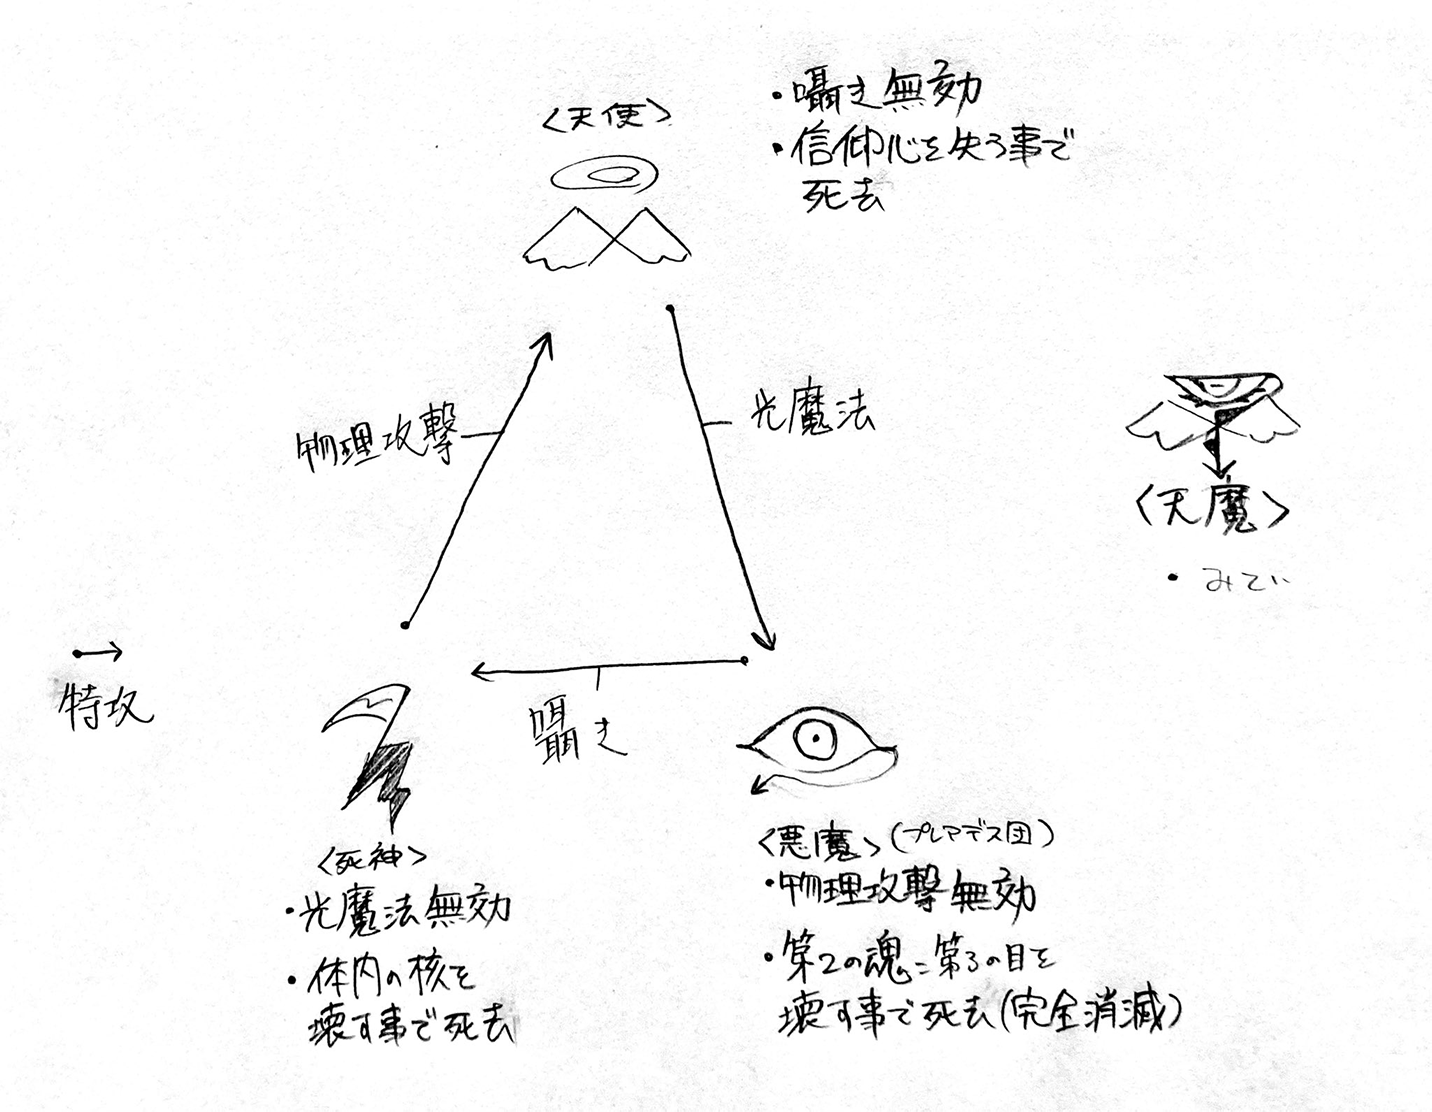 〈天使〉
・囁き無効
・信仰心を失う事で
死去
物理攻撃
光魔法
〈天魔〉
・みてい
特攻
囁き
〈死神〉
・光魔法無効
・体内の核を
壊す事で死去
〈悪魔〉(プレアデス団)
・物理攻撃無効
・第2の魂=第3の目を
壊す事で死去(完全消滅)